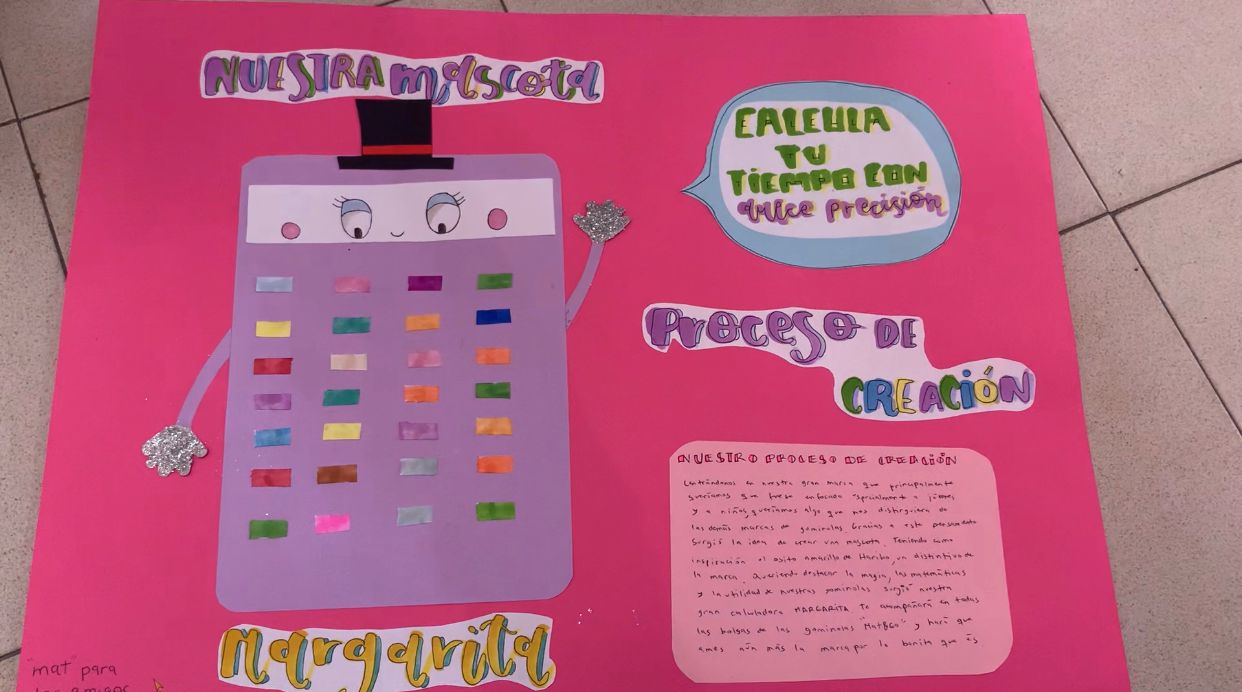 NUESTRA mascota
CALCULA
TU
TIEMPO CON
dulce precisión
Proceso DE
CREACIÓN
NUESTRO PROCESO DE CREACIÓN
Centrándonos en nuestra gran marca que principalmente
queríamos que fuese enfocada especialmente a jóvenes
y a niños, queríamos algo que nos distinguiera de
las demás marcas de gominolas. Gracias a este pensamiento
surgió la idea de crear una mascota. Teniendo como
inspiración el osito amarillo de Haribo, un distintivo de
la marca. Queriendo destacar la magia, las matemáticas
y la utilidad de nuestras gominolas surgió nuestra
gran calculadora MARGARITA. Te acompañará en todas
las bolsas de las gominolas "Mat&Go" y hará que
ames aún más la marca por lo bonita que es
Margarita
"mat" para
amigos